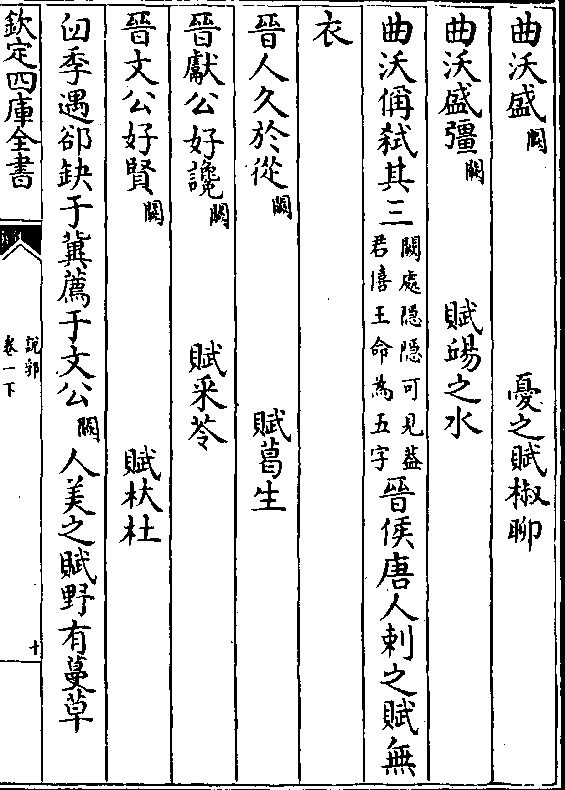 曲沃盛闕 憂之賦椒聊
曲沃盛彊闕 賦昜之水
曲沃偁弒其三闕處隠隠可見葢君僖王命為五字晉侯唐人刺之賦無
衣
晉人久於從闕 賦葛生
晉獻公好讒闕 賦采苓
晉文公好賢闕 賦杕杜
臼季遇郤缺于冀薦于文公闕人美之賦野有蔓草
欽定四庫全書
說郛
卷一下
十